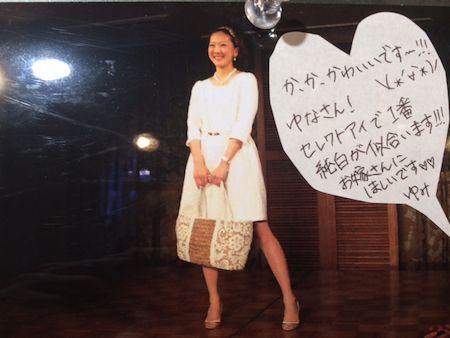 か、か、かわいいです〜!!!
\(*´∀`*)/
ゆなさん!
セレクトアイで1番
純白が似合います!!!
お嫁さんに
ほしいです♡♡